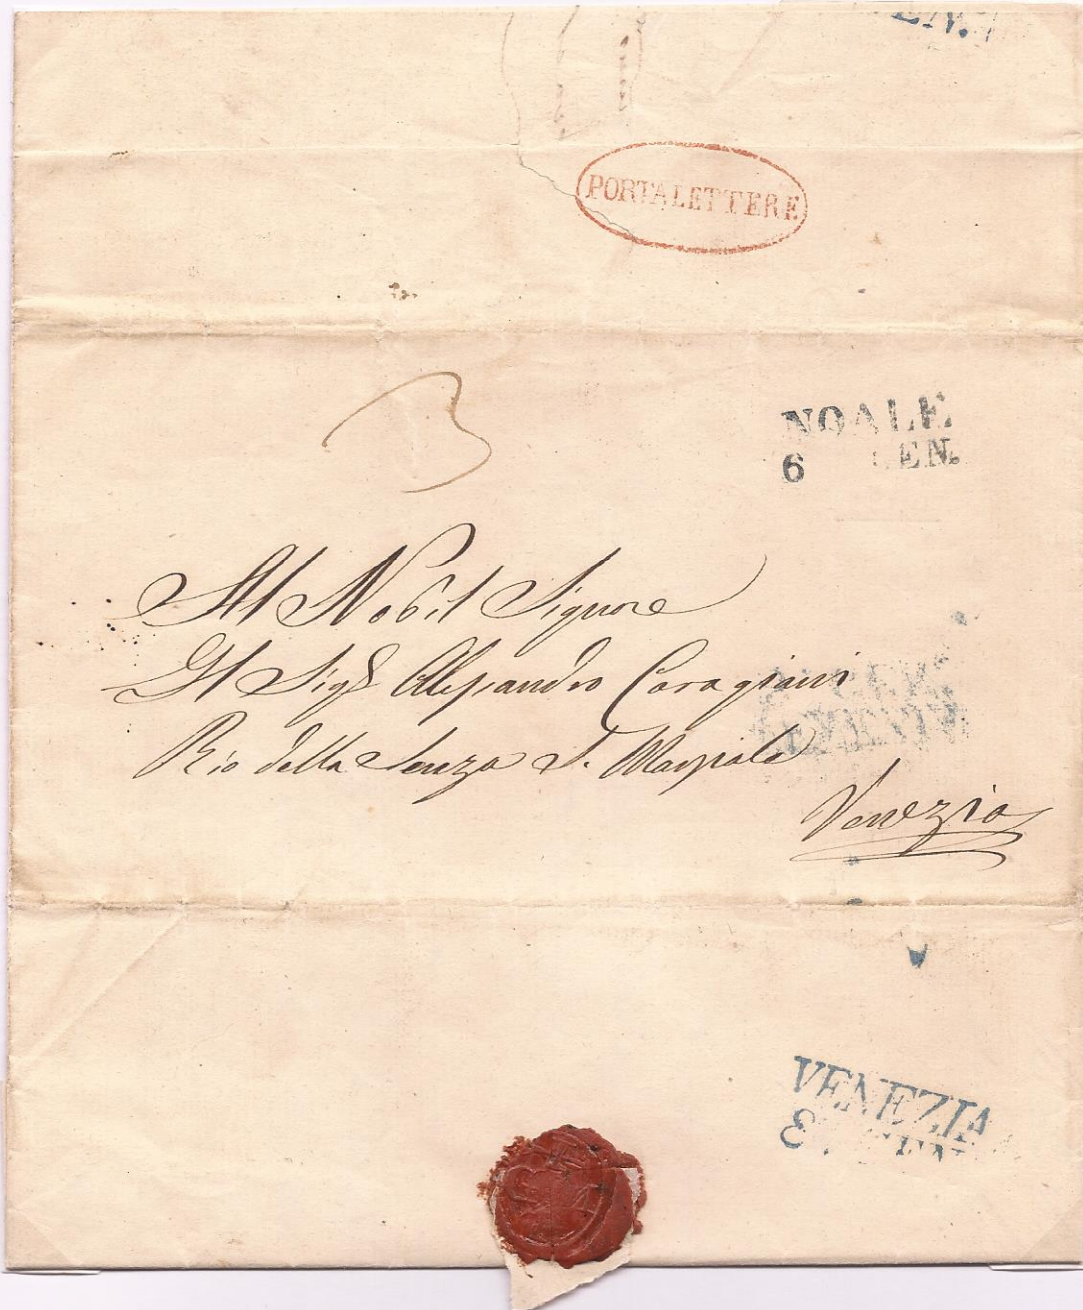 EN.
PORTALETTERE
3
NOALE
6 GEN.
Al Nobil Signore
Il Sigr Alessandro Caragiani
Rio della Senza S. Marziale
Venezia
VENEZIA
GEN